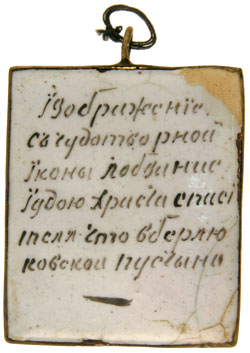 Їзображенїе
съ чудотворной
Їконы лобзанїе
Їудою Христа спасї
теля что вберлю
ковской пустыни